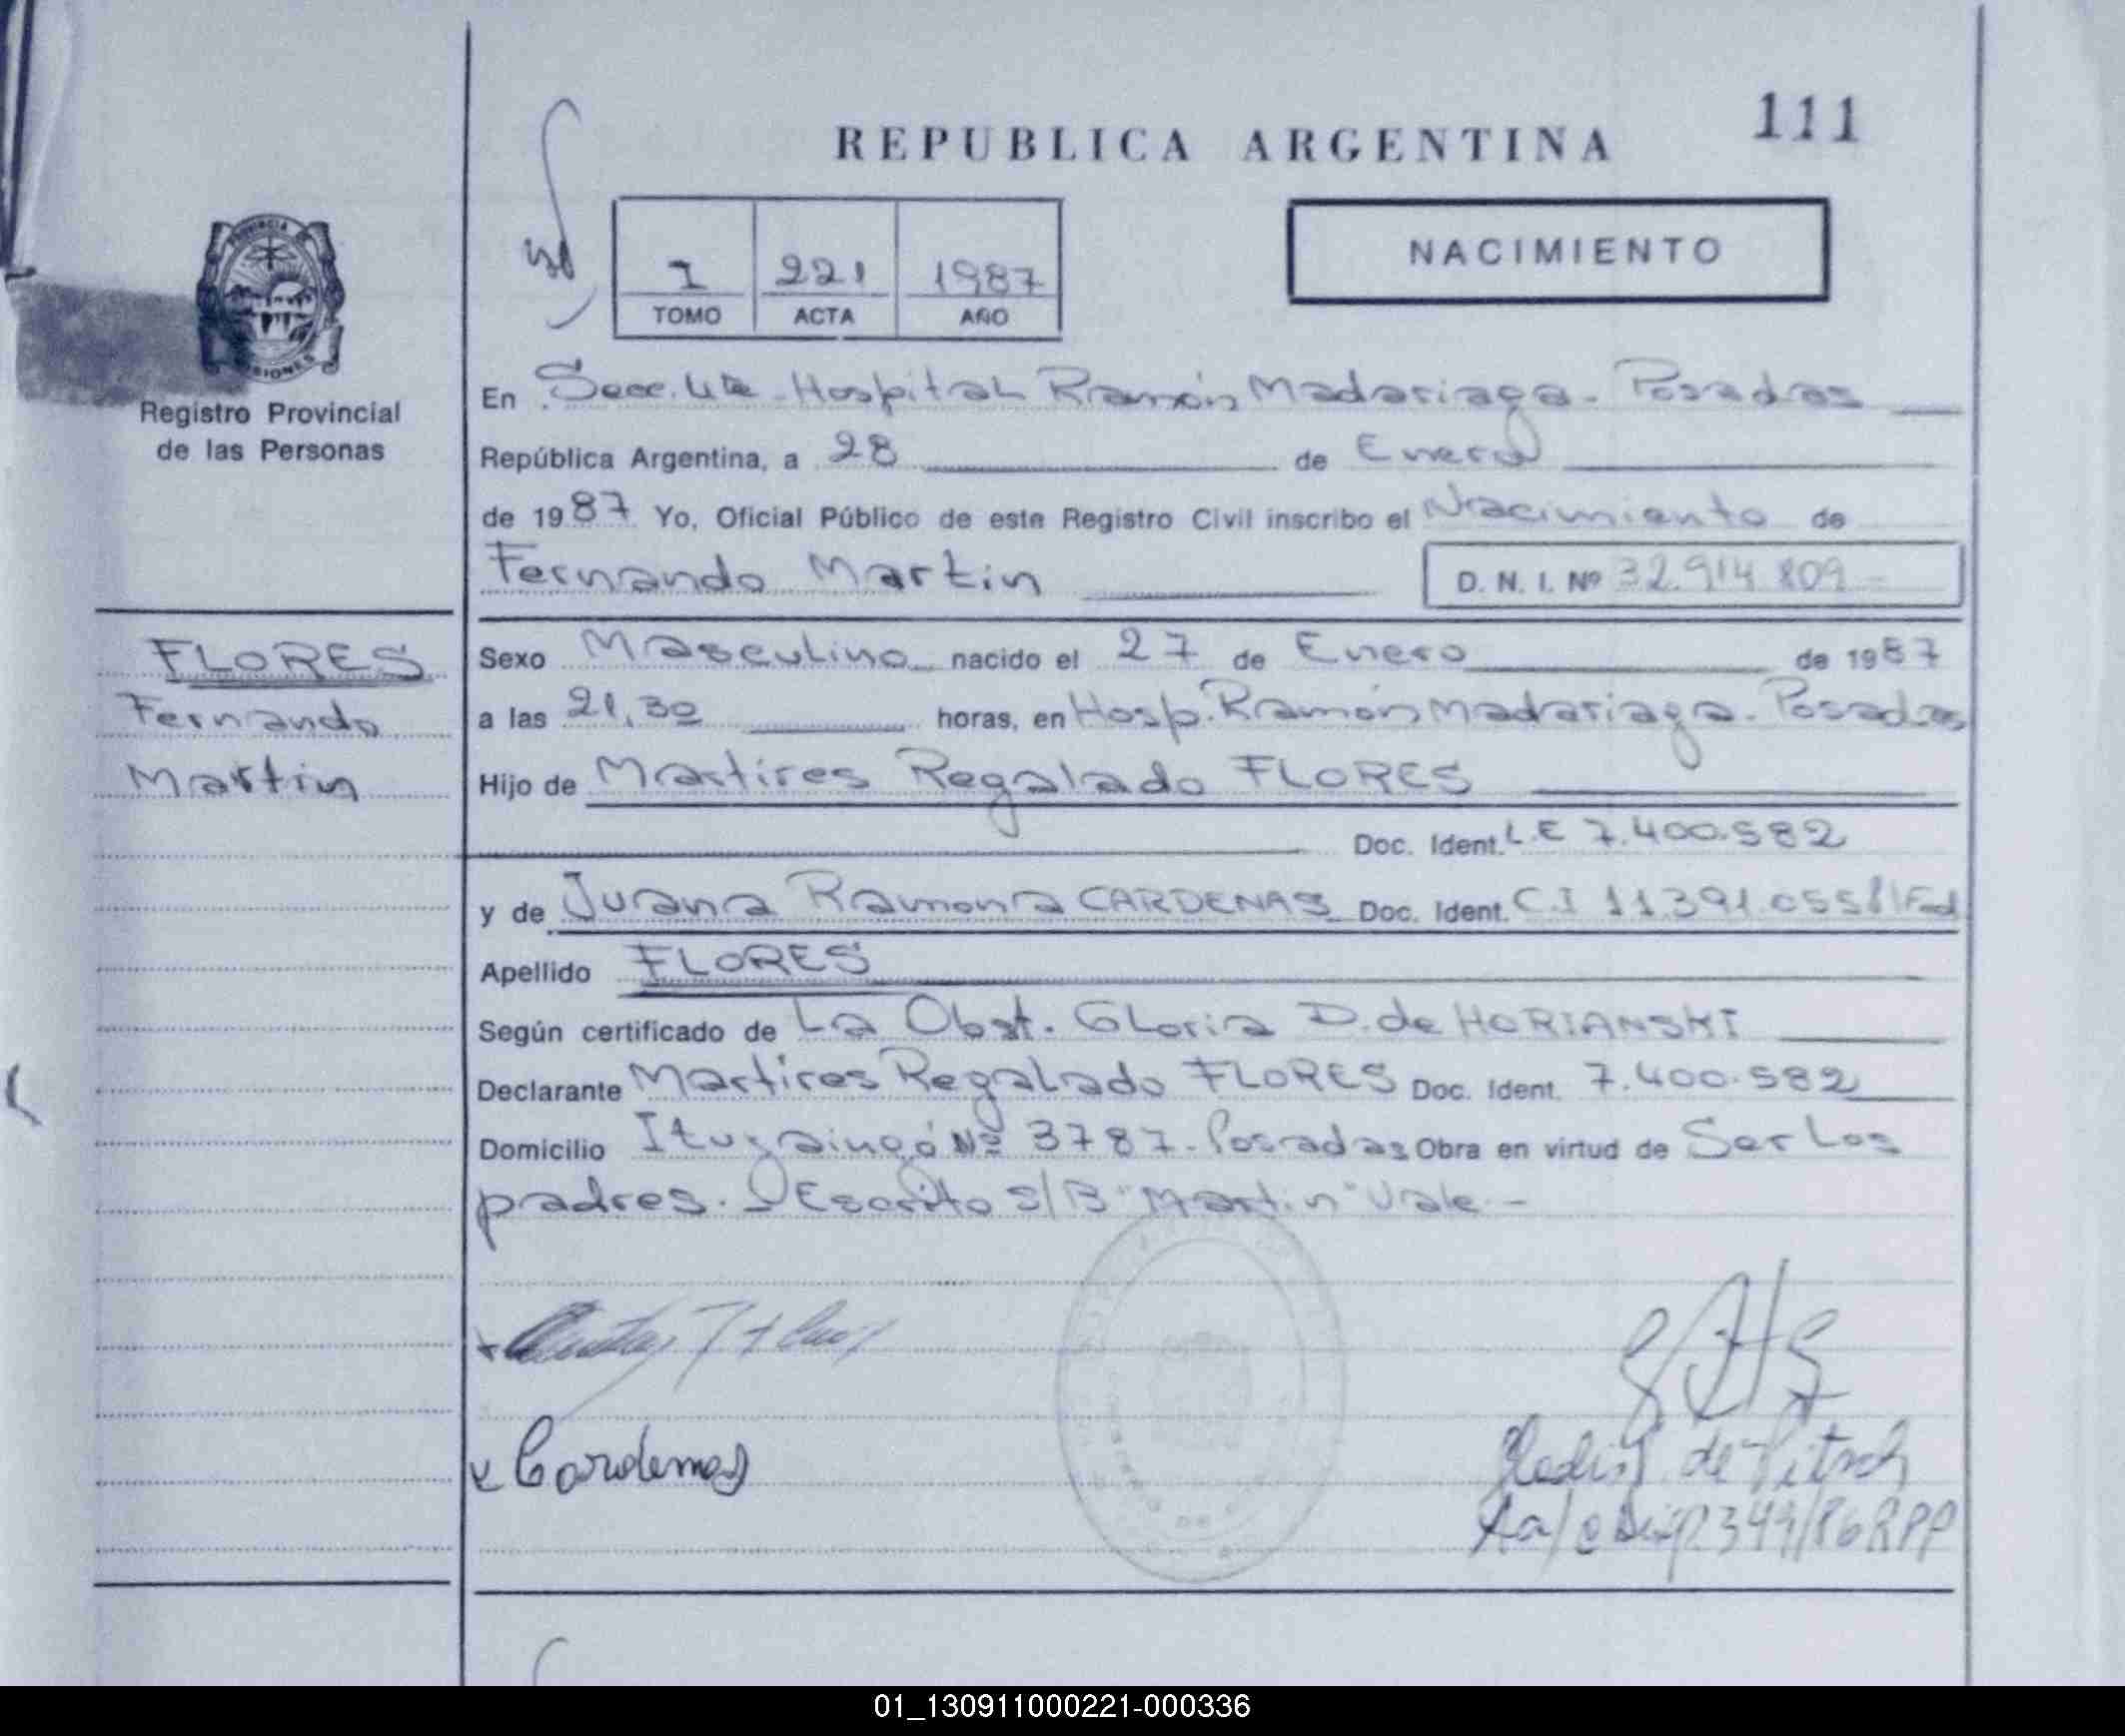 REPUBLICA ARGENTINA
111
NACIMIENTO
I 221 1987
TOMO ACTA AÑO
PROVINCIA
MISIONES
Registro Provincial
de las Personas
FLORES
Fernando
Martin
En Secc. 4ta Hospital Ramón Madariaga - Posadas
República Argentina, a 28 de Enero
de 1987 Yo, Oficial Público de este Registro Civil inscribo el Nacimiento de
Fernando Martin D. N. I. Nº 32.914.809
Sexo Masculino nacido el 27 de Enero de 1987
a las 21,30 horas, en Hosp. Ramón Madariaga - Posadas
Hijo de Martires Regalado FLORES
Doc. Ident. L.E 7.400.582
y de Juana Ramona CARDENAS Doc. Ident. C.I 11.391.055 Fed
Apellido FLORES
Según certificado de La Obst. Gloria D. de HORIANSKI
Declarante Martires Regalado FLORES Doc. Ident. 7.400.582
Domicilio Ituzaingó Nº 3787 - Posadas Obra en virtud de Ser Los
padres. Escrito S/B "Martin" Vale -
Cardenas
de Pitsch
349/86 RPP
01_130911000221-000336